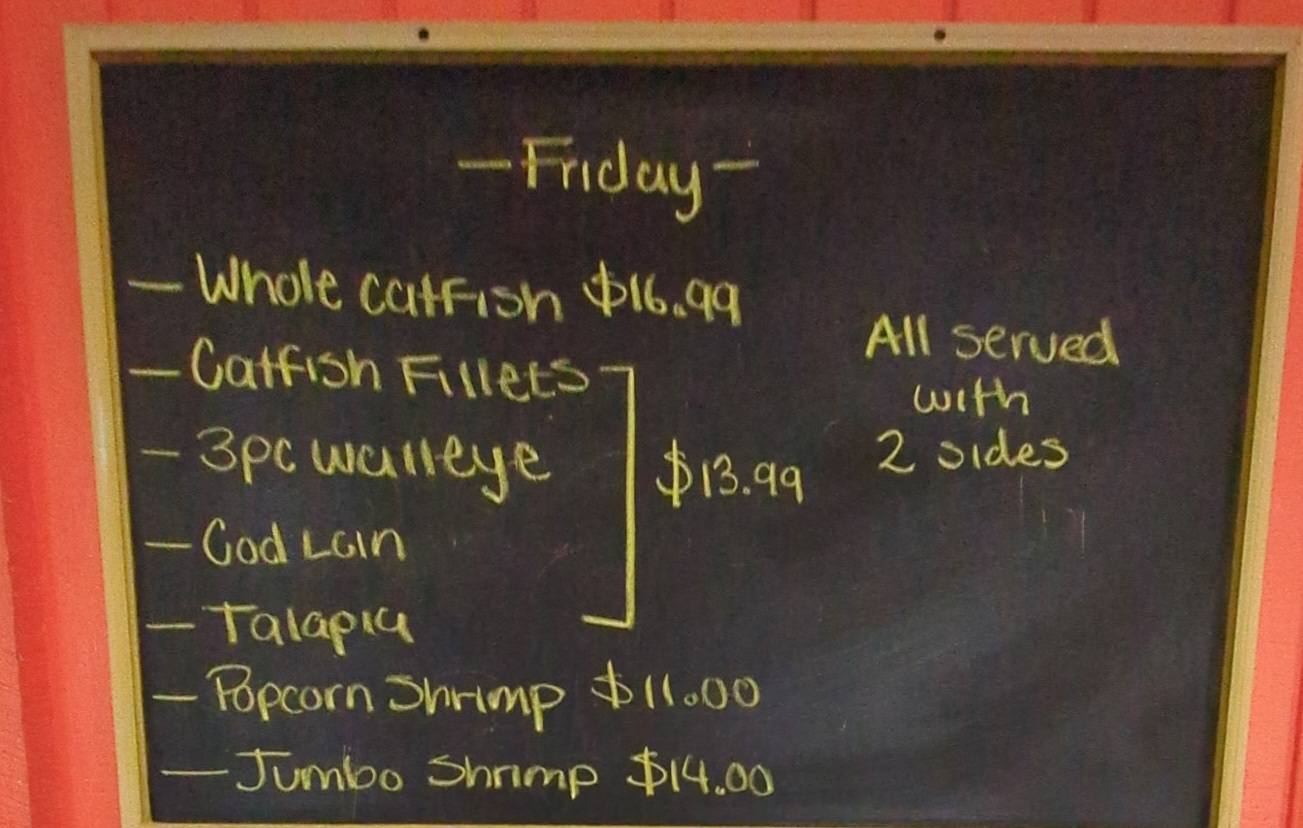 -Friday-
- Whole catfish $16.99
- Catfish Fillets
- 3pc walleye
- Cod Loin
- Talapia
$13.99
- Popcorn Shrimp $11.00
- Jumbo Shrimp $14.00
All served
with
2 sides